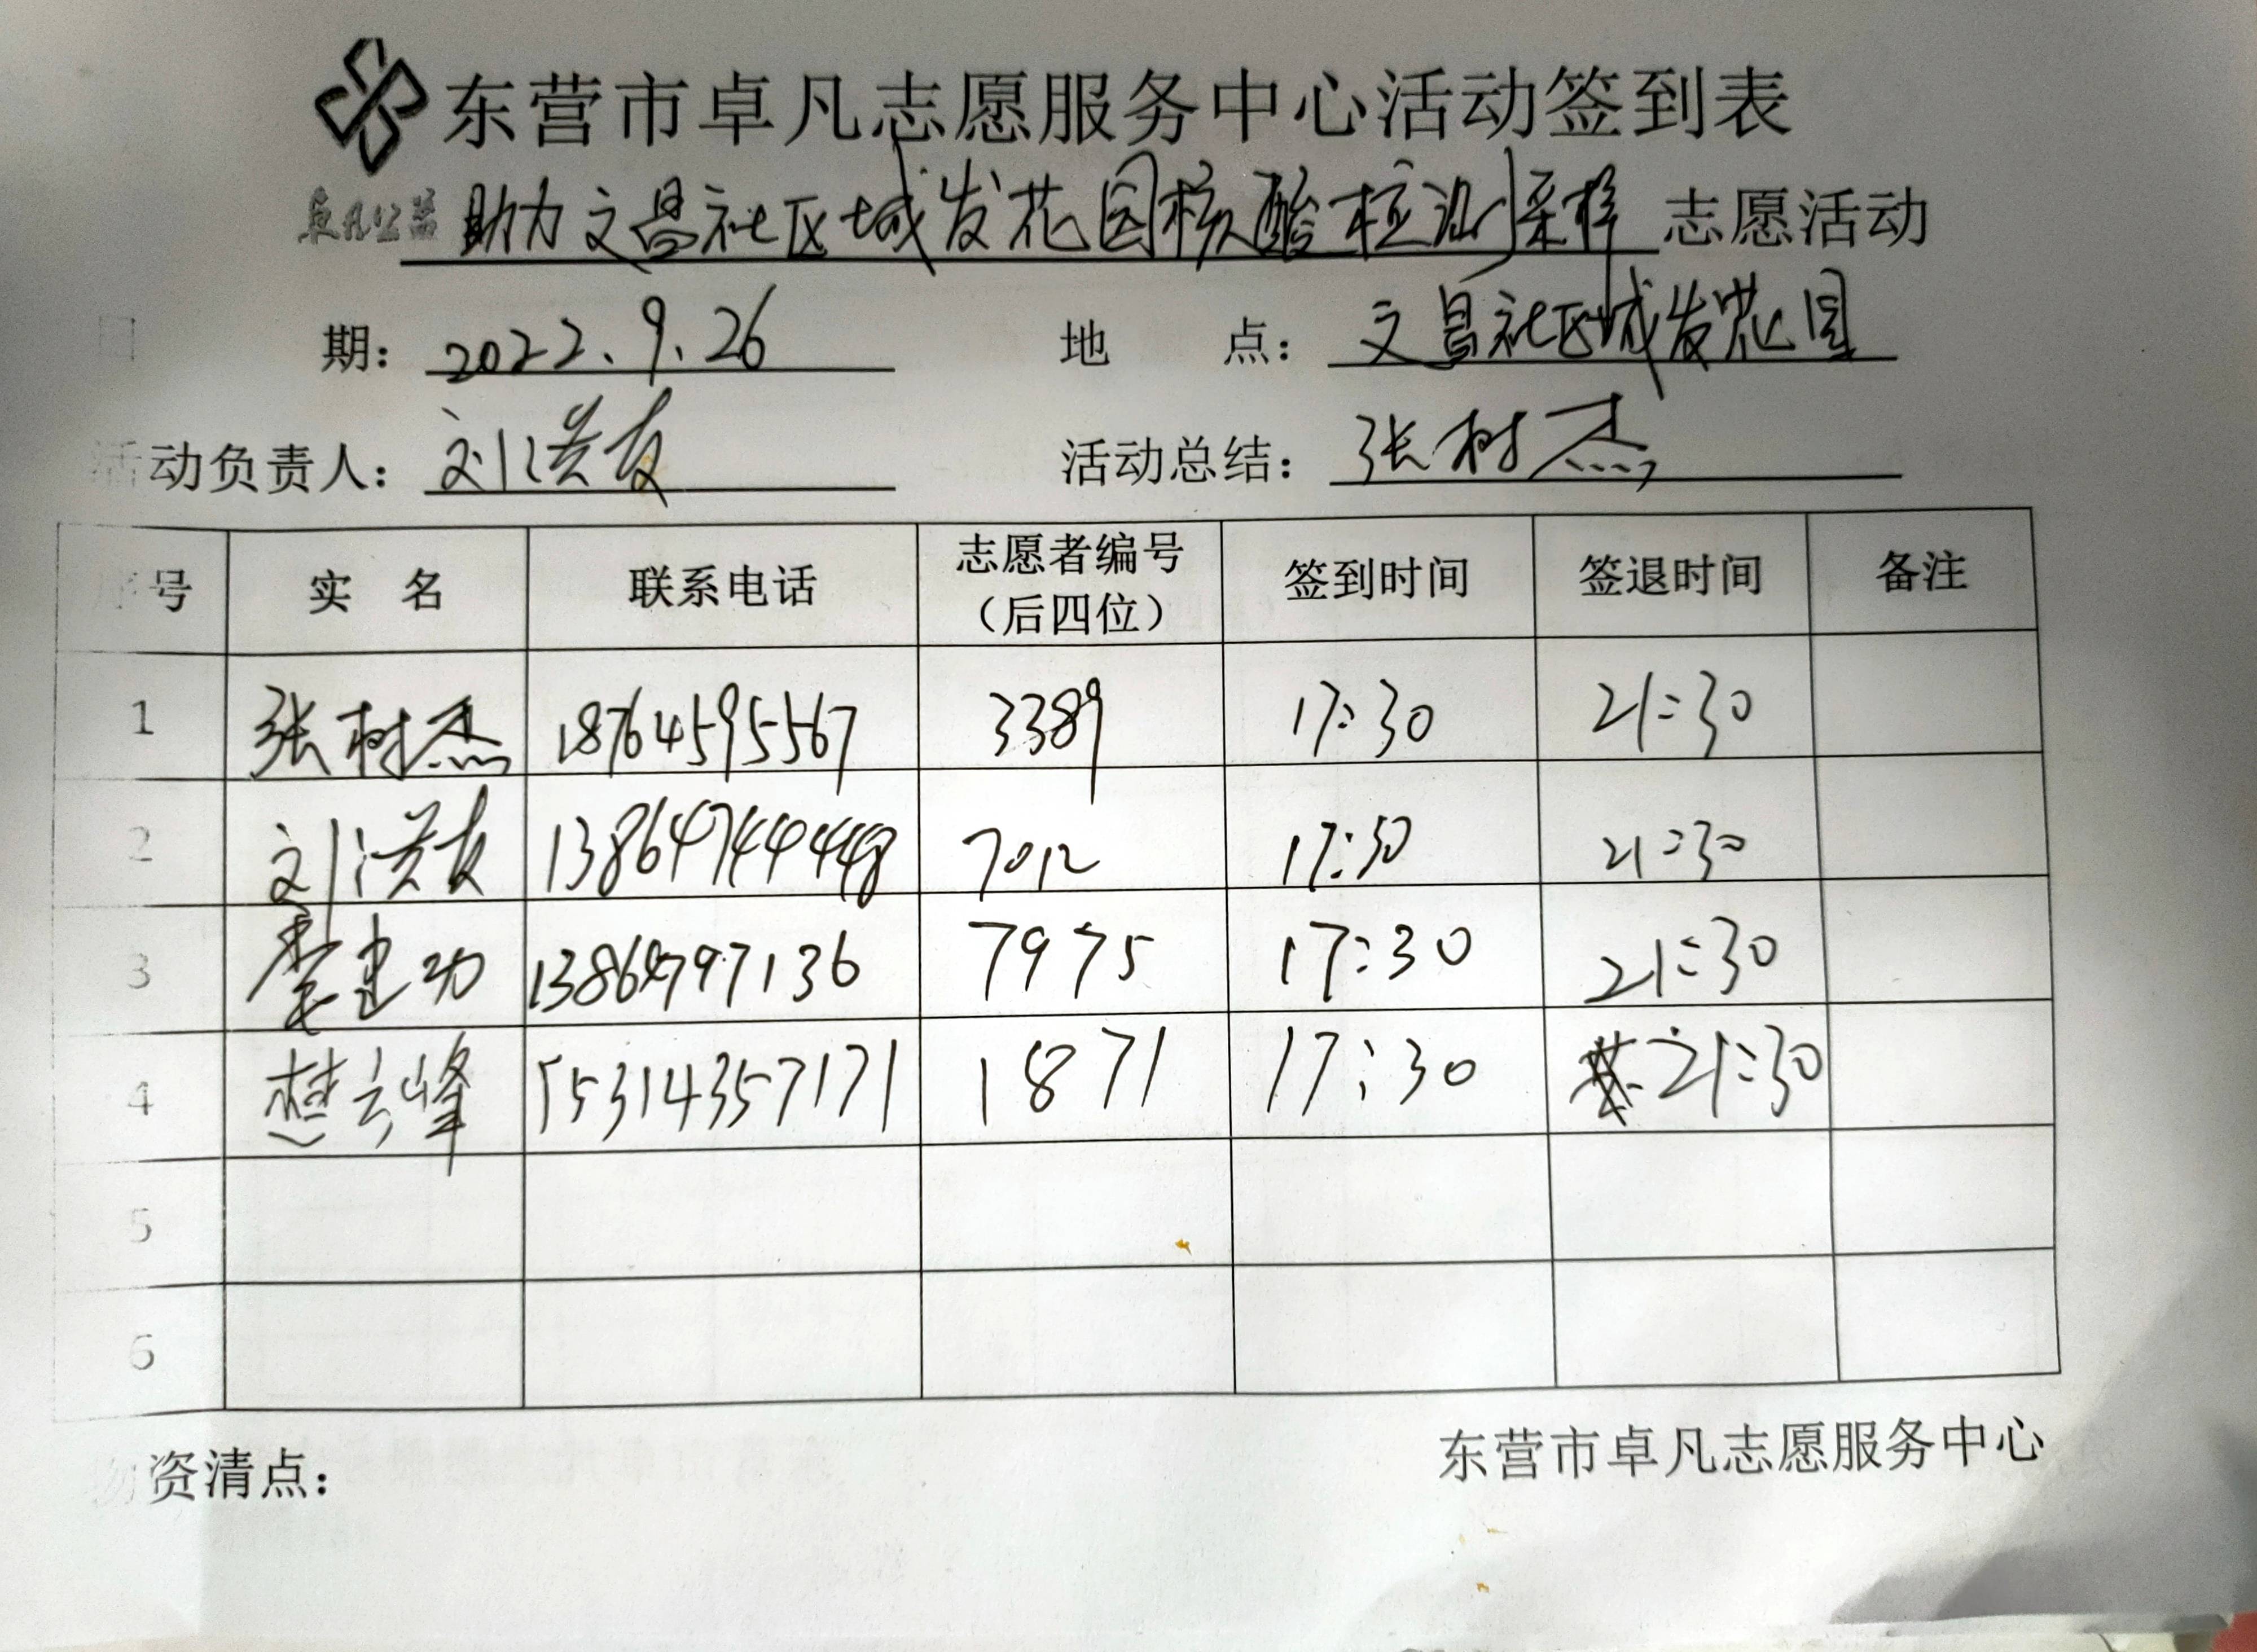 东营市卓凡志愿服务中心活动签到表
卓凡公益 助力文昌社区城发花园核酸检测采样 志愿活动
日 期： 2022.9.26 地 点： 文昌社区城发花园
活动负责人： 刘洪友 活动总结： 张树杰
序号 实 名 联系电话 志愿者编号（后四位） 签到时间 签退时间 备注
1 张树杰 18764595567 3389 17:30 21:30
2 刘洪友 13864744448 7012 17:30 21:30
3 李建功 13864797136 7975 17:30 21:30
4 楚云峰 15314357171 1871 17:30 21:30
5
6
物资清点： 东营市卓凡志愿服务中心